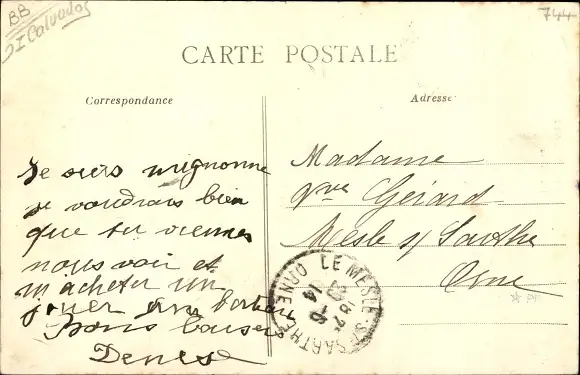 BB
I Calvados
744
CARTE POSTALE
Correspondance
Adresse
Je suis mignonne
je voudrais bien
que tu viennes
nous voir et
m acheter un
Bons baisers
Denise
Madame
Vve Gérard
Mesle s/ Sarthe
Orne
LE MESLE-S-SARTHE ORNE
14